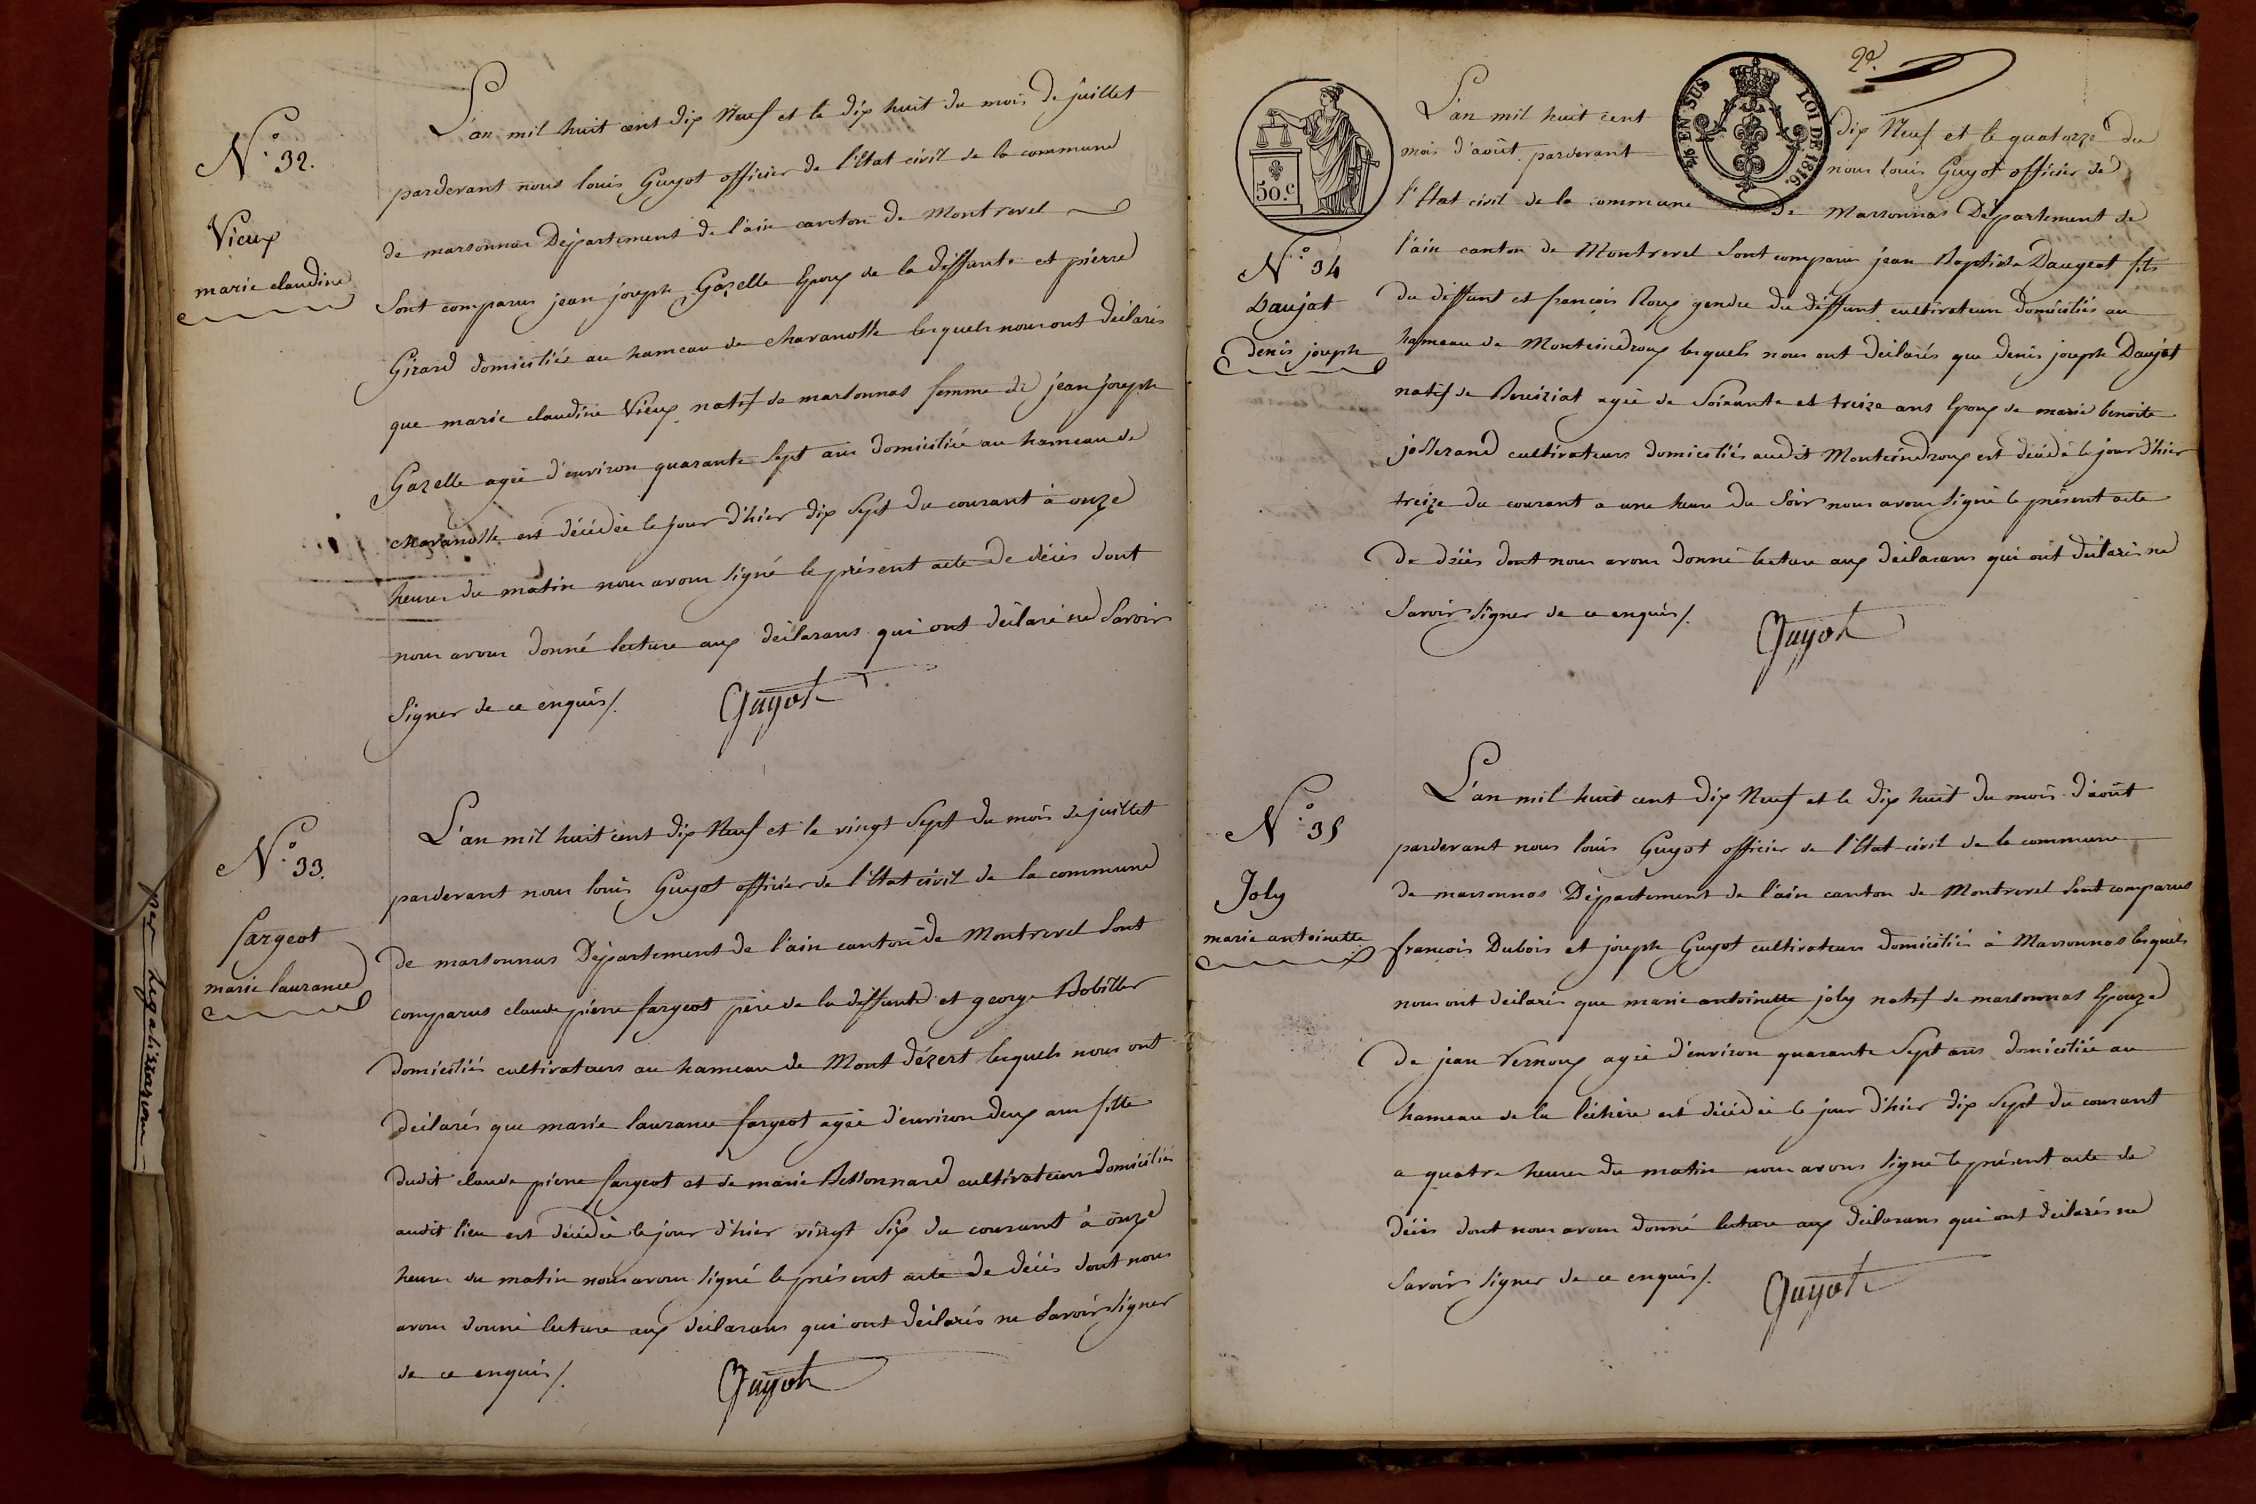 N.° 32.
Vieux
marie claudine
L'an mil huit cent dix Neuf et le dix huit du mois de juillet
pardevant nous louis Guyot officier de l'Etat civil de la commune
de marsonnas Département de l'ain canton de Montrevel
Sont comparus jean joseph Gazelle Epoux de la deffunte et pierre
Girard domiciliés au hameau de lesquels nous ont déclarés
que marie claudine Vieux natif de marsonnas femme de jean joseph
Gazelle agée d'environ quarante Sept ans domiciliée au hameau de
est décédée le jour d'hier dix Sept du courant à onze
heures du matin nous avons signé le présent acte de décès dont
nous avons donné lecture aux déclarans qui ont déclaré ne Savoir
Signer de ce enquis/.
Guyot
N.° 33.
fargeot
marie laurance
L'an mil huit cent dix Neuf et le vingt Sept du mois de juillet
pardevant nous louis Guyot officier de l'Etat civil de la commune
de marsonnas Département de l'ain canton de Montrevel Sont
comparus claude pierre fargeot père de la deffunte et george Bobillet
domiciliés cultivateurs au hameau de Mont dézert lesquels nous ont
déclarés que marie laurance fargeot agée d'environ deux ans fille
dudit claude pierre fargeot et de marie Bessonnard cultivateurs domiciliés
audit lieu est décédée le jour d'hier vingt Six du courant à onze
heures du matin nous avons signé le présent acte de décès dont nous
avons donné lecture aux déclarans qui ont déclarés ne Savoir Signer
de ce enquis/.
Guyot
per Legalisazione
50.c
4/6 EN SUS
LOI DE 1816.
N.° 34
Daujat
denis joseph
L'an mil huit cent dix Neuf et le quatorze du
mois d'août pardevant nous louis Guyot officier de
l'Etat civil de la commune de Marsonnas Département de
l'ain canton de Montrevel Sont comparus jean Baptiste Daugeat fils
du deffunt et françois Roux gendre du deffunt cultivateurs domiciliés au
hameau de Montcindroux lesquels nous ont déclarés que denis joseph Daujat
natif de Béréziat agée de Soixante et treize ans Epoux de marie benoite
josserand cultivateurs domiciliés audit Montcindroux est décédé le jour d'hier
treize du courant a une heure du Soir nous avons signé le présent acte
de décès dont nous avons donné lecture aux déclarans qui ont déclarés ne
Savoir Signer de ce enquis/.
Guyot
N.° 35
Joly
marie antoinette
L'an mil huit cent dix Neuf et le dix huit du mois d'août
pardevant nous louis Guyot officier de l'Etat civil de la commune
de marsonnas Département de l'ain canton de Montrevel Sont comparus
françois Dubois et joseph Guyot cultivateurs domiciliés à Marsonnas lesquels
nous ont déclarés que marie antoinette joly natif de marsonnas Epouze
de jean Vernoux agée d'environ quarante Sept ans domiciliée au
hameau de la léchère est décédée le jour d'hier dix Sept du courant
a quatre heures du matin nous avons signé le présent acte de
décès dont nous avons donné lecture aux déclarans qui ont déclarés ne
Savoir Signer de ce enquis/.
Guyot